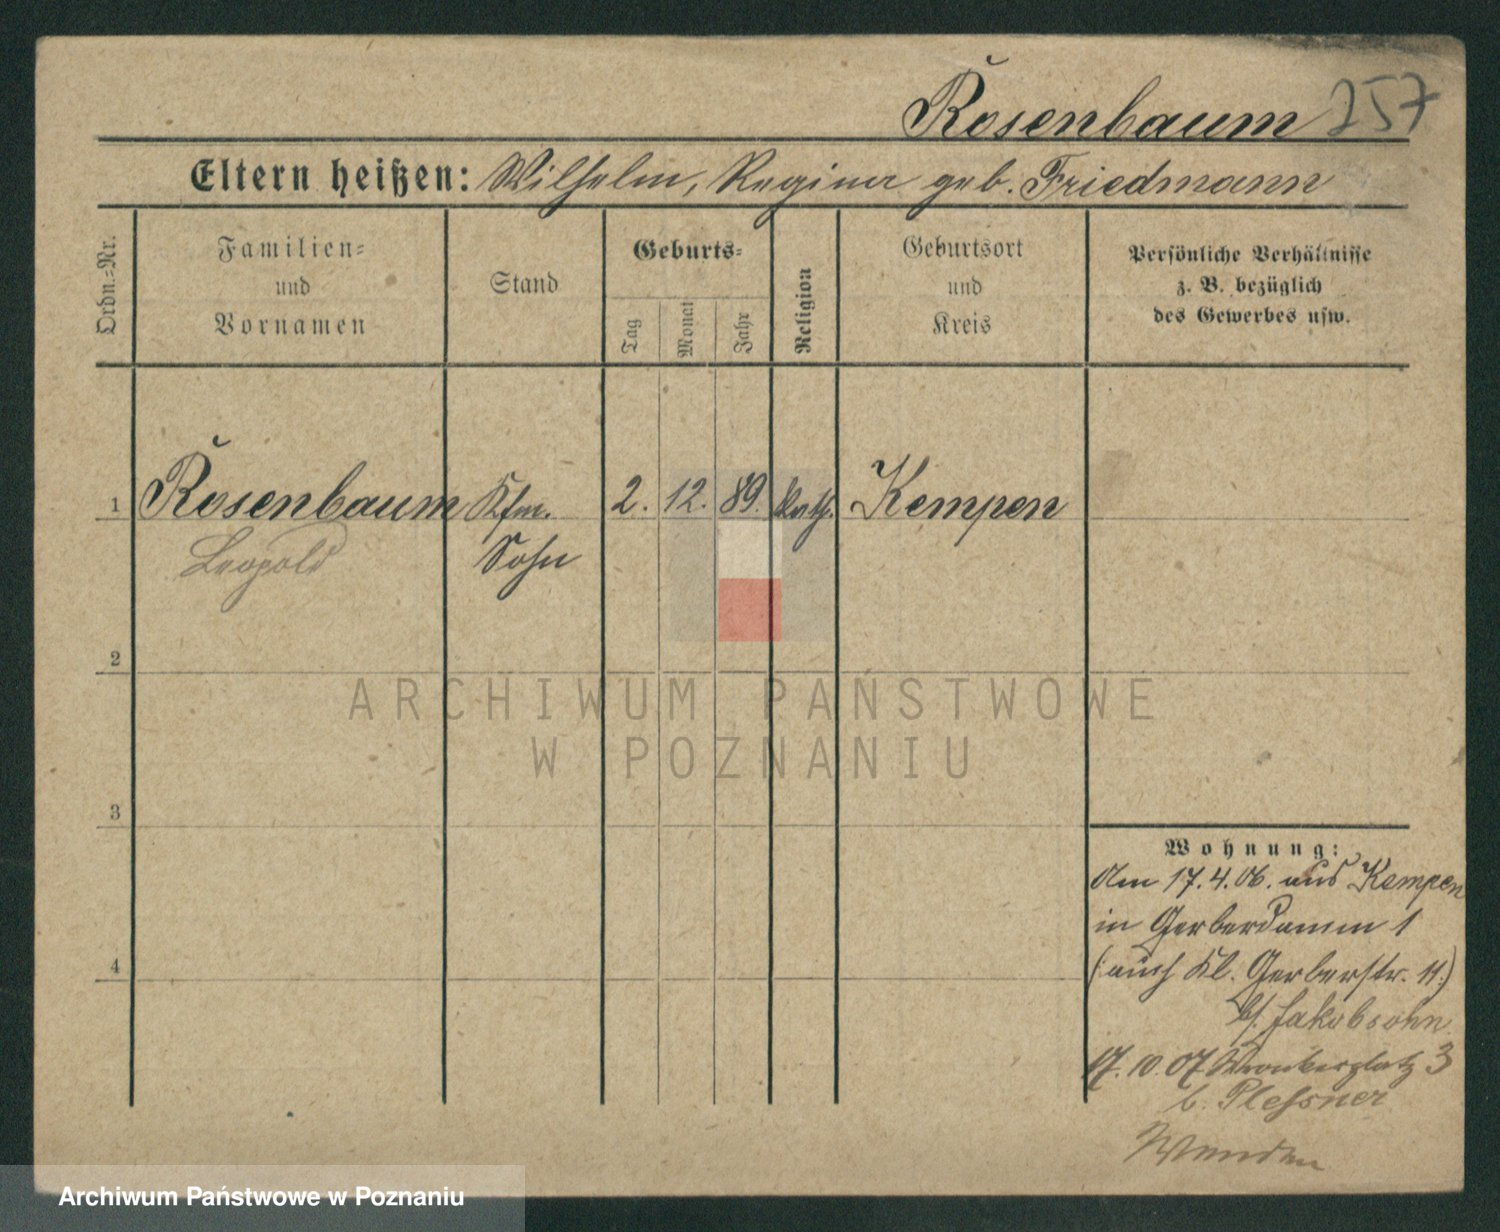 Rosenbaum 257
Eltern heißen: Wilhelm, Regina geb. Friedmann
Ordn.=Nr.
Familien=
und
Vornamen
Stand
Geburts=
Tag
Monat
Jahr
Religion
Geburtsort
und
Kreis
Persönliche Verhältnisse
z. B. bezüglich
des Gewerbes usw.
1 Rosenbaum Kfm. 2. 12. 89. Kempen
Leopold Sohn
2
ARCHIWUM PAŃSTWOWE
W POZNANIU
3
Wohnung:
Am 17.4.06. aus Kempen
in Gerberdamm 1
(auch Kl. Gerberstr. 11.)
b/ Jakobsohn
10.07 Wronkerplatz 3
b. Plessner
4
Archiwum Państwowe w Poznaniu